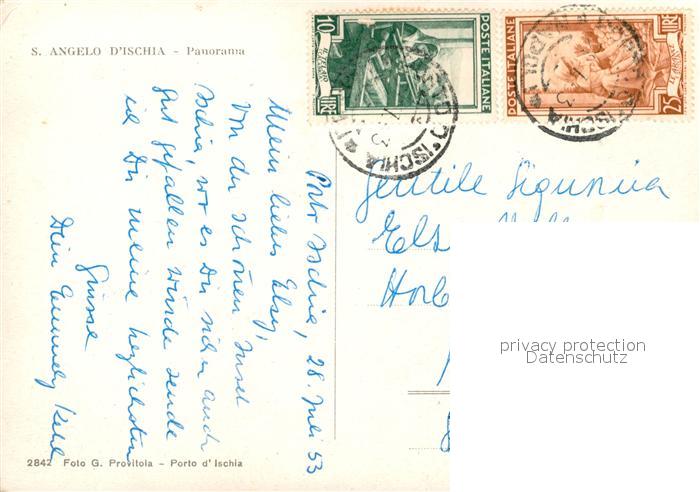 S. ANGELO D'ISCHIA - Panorama
Porto Ischia, 28. Juli 53
Mein liebes Elsy,
Von der schönen Insel
Ischia, wo es Dir sicher auch
gut gefallen würde sende
ich Dir meine herzlichsten
Grüsse
Dein
2842 Foto G. Provitola - Porto d'Ischia
10 LIRE
POSTE ITALIANE
POSTE ITALIANE
LIRE 25
PORTO D'ISCHIA
ISCHIA
Gentile Signorina
Els
Horb
privacy protection
Datenschutz